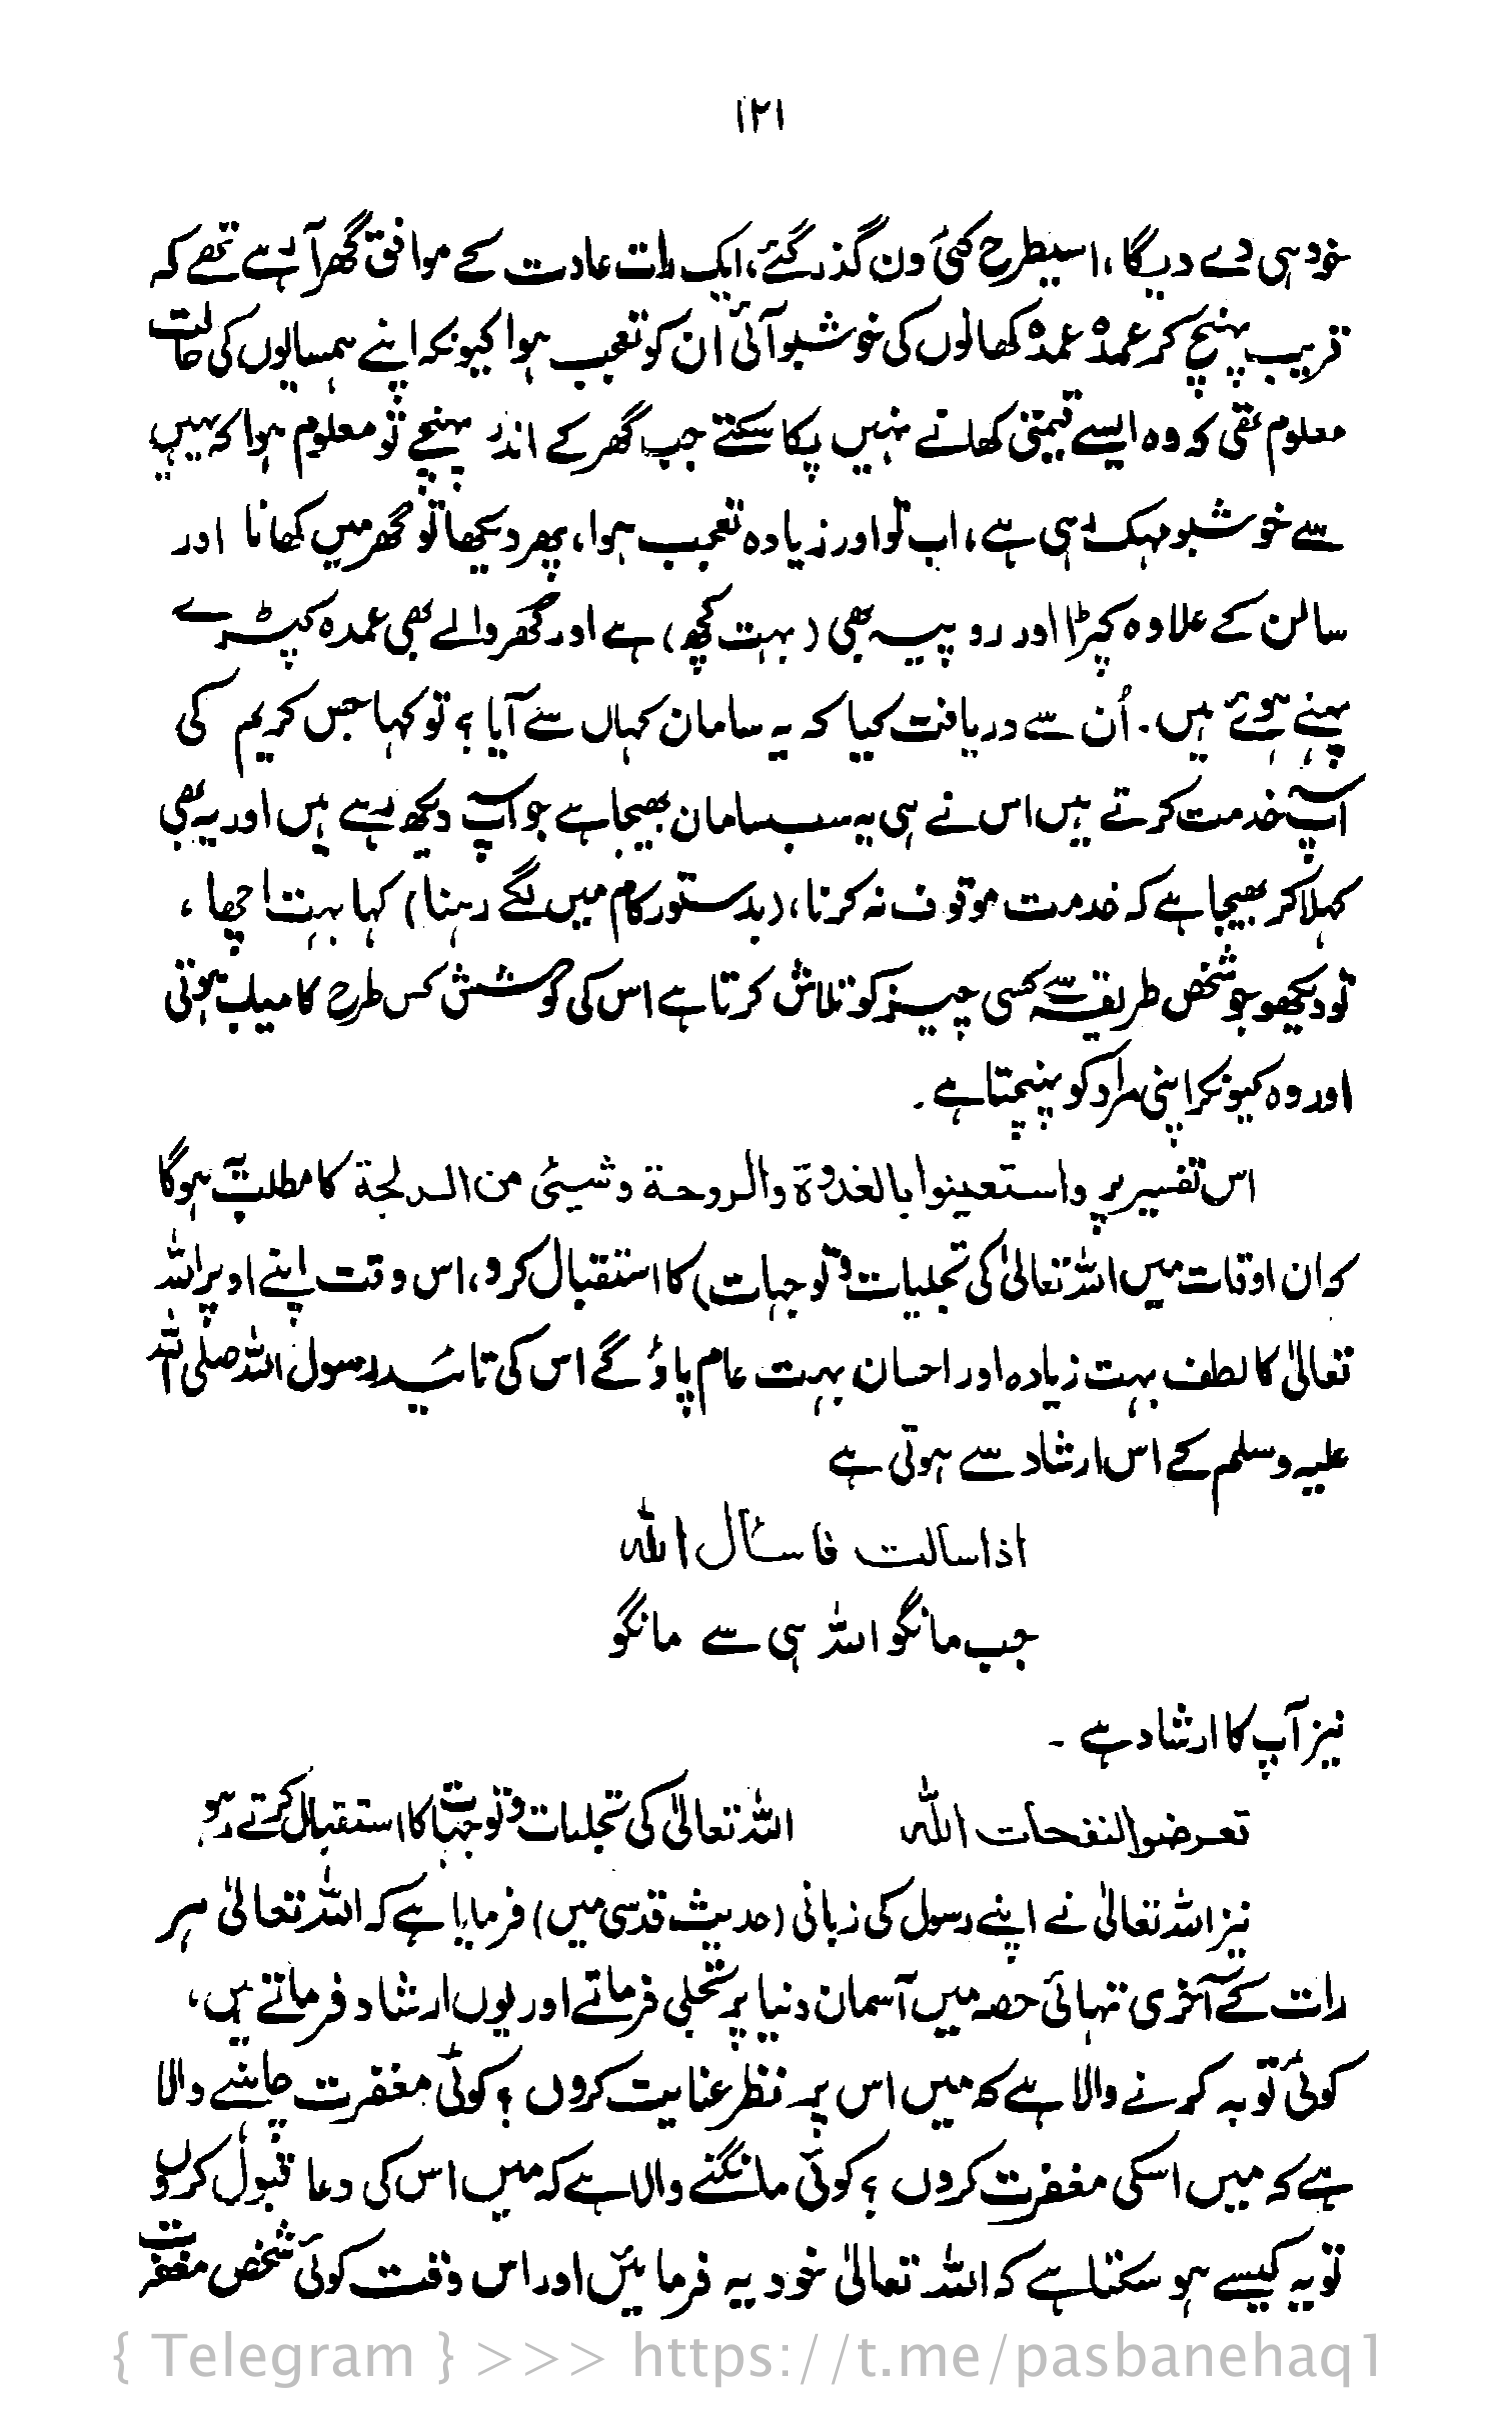 ۱۲۱
خود ہی دے دیگا، اسیطرح کئی دن گذر گئے، ایک رات عادت کے موافق گھر آ رہے تھے کہ
قریب پہنچ کر عمدہ عمدہ کھانوں کی خوشبو آئی ان کو تعجب ہوا کیونکہ اپنے ہمسایوں کی حالت
معلوم تھی کہ وہ ایسے قیمتی کھانے نہیں پکا سکتے جب گھر کے اندر پہنچے تو معلوم ہوا کہ یہیں
سے خوشبو مہک رہی ہے، اب تو اور زیادہ تعجب ہوا، پھر دیکھا تو گھر میں کھانا اور
سالن کے علاوہ کپڑا اور روپیہ بھی (بہت کچھ) ہے اور گھر والے بھی عمدہ کپڑے
پہنے ہوئے ہیں۔ اُن سے دریافت کیا کہ یہ سامان کہاں سے آیا؟ تو کہا جس کریم کی
آپ خدمت کرتے ہیں اس نے ہی یہ سب سامان بھیجا ہے جو آپ دیکھ رہے ہیں اور یہ بھی
کہلا کر بھیجا ہے کہ خدمت موقوف نہ کرنا، (بدستور کام میں لگے رہنا) کہا بہت اچھا،
تو دیکھو جو شخص طریقہ سے کسی چیز کو تلاش کرتا ہے اس کی کوشش کس طرح کامیاب ہوتی
اور وہ کیونکر اپنی مراد کو پہنچتا ہے۔
اس تفسیر پر واستعینوا بالغدوۃ والروحۃ وشیئی من الدلجۃ کا مطلب یہ ہوگا
کہ ان اوقات میں اللہ تعالیٰ کی تجلیات و توجہات) کا استقبال کرو، اس وقت اپنے اوپر اللہ
تعالیٰ کا لطف بہت زیادہ اور احسان بہت عام پاؤ گے اس کی تائید رسول اللہ صلی اللہ
علیہ وسلم کے اس ارشاد سے ہوتی ہے
اذا سالت فاسئال اللہ
جب مانگو اللہ ہی سے مانگو
نیز آپ کا ارشاد ہے۔
تعرضوا لنفحات اللہ اللہ تعالیٰ کی تجلیات و توجہات کا استقبال کرتے رہو
نیز اللہ تعالیٰ نے اپنے رسول کی زبانی (حدیث قدسی میں) فرمایا ہے کہ اللہ تعالیٰ ہر
رات کے آخری تہائی حصہ میں آسمان دنیا پر تجلی فرماتے اور یوں ارشاد فرماتے ہیں،
کوئی توبہ کرنے والا ہے کہ میں اس پر نظر عنایت کروں؟ کوئی مغفرت چاہنے والا
ہے کہ میں اسکی مغفرت کروں؟ کوئی مانگنے والا ہے کہ میں اس کی دعا قبول کروں
تو یہ کیسے ہو سکتا ہے کہ اللہ تعالیٰ خود یہ فرمائیں اور اس وقت کوئی شخص مغفرت
{ Telegram } >>> https://t.me/pasbanehaq1